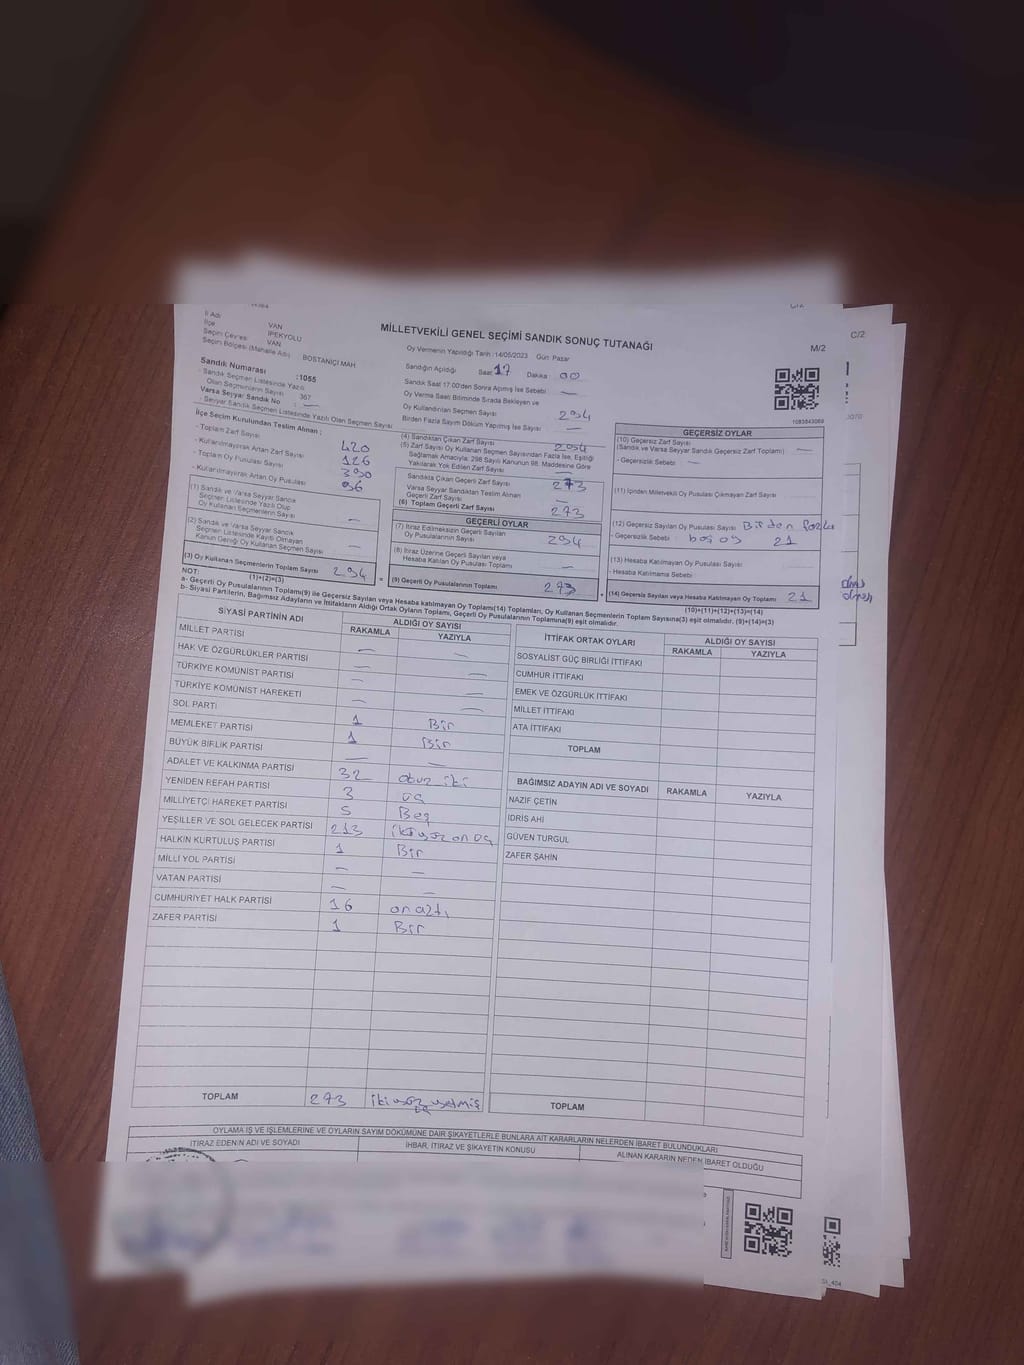 C/2
M/2
C/2
MİLLETVEKİLİ GENEL SEÇİMİ SANDIK SONUÇ TUTANAĞI
İl Adı
İlçe VAN
Seçim Çevresi İPEKYOLU
Seçim Bölgesi (Mahalle Adı) VAN
BOSTANİÇİ MAH
Oy Vermenin Yapıldığı Tarih :14/05/2023 Gün Pazar
Sandığın Açıldığı Saat 17 Dakika : 00
Sandık Saat 17:00'den Sonra Açılmış İse Sebebi —
Oy Verme Saati Bitiminde Sırada Bekleyen ve
Oy Kullandırılan Seçmen Sayısı 294
Birden Fazla Sayım Döküm Yapılmış İse Sayısı —
Sandık Numarası :1055
- Sandık Seçmen Listesinde Yazılı
Olan Seçmenlerin Sayısı 367
Varsa Seyyar Sandık No : —
- Seyyar Sandık Seçmen Listesinde Yazılı Olan Seçmen Sayısı
İlçe Seçim Kurulundan Teslim Alınan :
- Toplam Zarf Sayısı 420
- Kullanılmayarak Artan Zarf Sayısı 126
- Toplam Oy Pusulası Sayısı 390
- Kullanılmayarak Artan Oy Pusulası 96
(1) Sandık ve Varsa Seyyar Sandık
Seçmen Listesinde Yazılı Olup
Oy Kullanan Seçmenlerin Sayısı —
(2) Sandık ve Varsa Seyyar Sandık
Seçmen Listesinde Kayıtlı Olmayan
Kanun Gereği Oy Kullanan Seçmen Sayısı —
(3) Oy Kullanan Seçmenlerin Toplam Sayısı 294
(1)+(2)=(3)
(4) Sandıktan Çıkan Zarf Sayısı 294
(5) Zarf Sayısı Oy Kullanan Seçmen Sayısından Fazla İse, Eşitliği
Sağlamak Amacıyla; 298 Sayılı Kanunun 98. Maddesine Göre
Yakılarak Yok Edilen Zarf Sayısı —
Sandıkta Çıkan Geçerli Zarf Sayısı 273
Varsa Seyyar Sandıktan Teslim Alınan
Geçerli Zarf Sayısı —
(6) Toplam Geçerli Zarf Sayısı 273
GEÇERLİ OYLAR
(7) İtiraz Edilmeksizin Geçerli Sayılan
Oy Pusulalarının Sayısı 294
(8) İtiraz Üzerine Geçerli Sayılan veya
Hesaba Katılan Oy Pusulası Toplamı —
(9) Geçerli Oy Pusulalarının Toplamı 273
1083843069
GEÇERSİZ OYLAR
(10) Geçersiz Zarf Sayısı
(Sandık ve Varsa Seyyar Sandık Geçersiz Zarf Toplamı) —
- Geçersizlik Sebebi —
(11) İçinden Milletvekili Oy Pusulası Çıkmayan Zarf Sayısı
(12) Geçersiz Sayılan Oy Pusulası Sayısı Birden fazla
- Geçersizlik Sebebi 21
(13) Hesaba Katılmayan Oy Pusulası Sayısı
- Hesaba Katılmama Sebebi
(14) Geçersiz Sayılan veya Hesaba Katılmayan Oy Toplamı 21
(10)+(11)+(12)+(13)=(14)
NOT:
a- Geçerli Oy Pusulalarının Toplamı(9) ile Geçersiz Sayılan veya Hesaba katılmayan Oy Toplamı(14) Toplamları, Oy Kullanan Seçmenlerin Toplam Sayısına(3) eşit olmalıdır. (9)+(14)=(3)
b- Siyasi Partilerin, Bağımsız Adayların ve İttifakların Aldığı Ortak Oyların Toplamı, Geçerli Oy Pusulalarının Toplamına(9) eşit olmalıdır.
SİYASİ PARTİNİN ADI ALDIĞI OY SAYISI
RAKAMLA YAZIYLA
MİLLET PARTİSİ — —
HAK VE ÖZGÜRLÜKLER PARTİSİ — —
TÜRKİYE KOMÜNİST PARTİSİ — —
TÜRKİYE KOMÜNİST HAREKETİ — —
SOL PARTİ 1 Bir
MEMLEKET PARTİSİ 1 Bir
BÜYÜK BİRLİK PARTİSİ — —
ADALET VE KALKINMA PARTİSİ 32 otuz iki
YENİDEN REFAH PARTİSİ 3 üç
MİLLİYETÇİ HAREKET PARTİSİ 5 Beş
YEŞİLLER VE SOL GELECEK PARTİSİ 213 ikiyüz on üç
HALKIN KURTULUŞ PARTİSİ 1 Bir
MİLLİ YOL PARTİSİ — —
VATAN PARTİSİ — —
CUMHURİYET HALK PARTİSİ 16 on altı
ZAFER PARTİSİ 1 Bir
TOPLAM 273 ikiyüz yetmiş
üç
İTTİFAK ORTAK OYLARI ALDIĞI OY SAYISI
RAKAMLA YAZIYLA
SOSYALİST GÜÇ BİRLİĞİ İTTİFAKI
CUMHUR İTTİFAKI
EMEK VE ÖZGÜRLÜK İTTİFAKI
MİLLET İTTİFAKI
ATA İTTİFAKI
TOPLAM
BAĞIMSIZ ADAYIN ADI VE SOYADI RAKAMLA YAZIYLA
NAZİF ÇETİN
İDRİS AHİ
GÜVEN TURGUL
ZAFER ŞAHİN
TOPLAM
OYLAMA İŞ VE İŞLEMLERİNE VE OYLARIN SAYIM DÖKÜMÜNE DAİR ŞİKAYETLERLE BUNLARA AİT KARARLARIN NELERDEN İBARET BULUNDUKLARI
İTİRAZ EDENİN ADI VE SOYADI İHBAR, İTİRAZ VE ŞİKAYETİN KONUSU ALINAN KARARIN NEDEN İBARET OLDUĞU